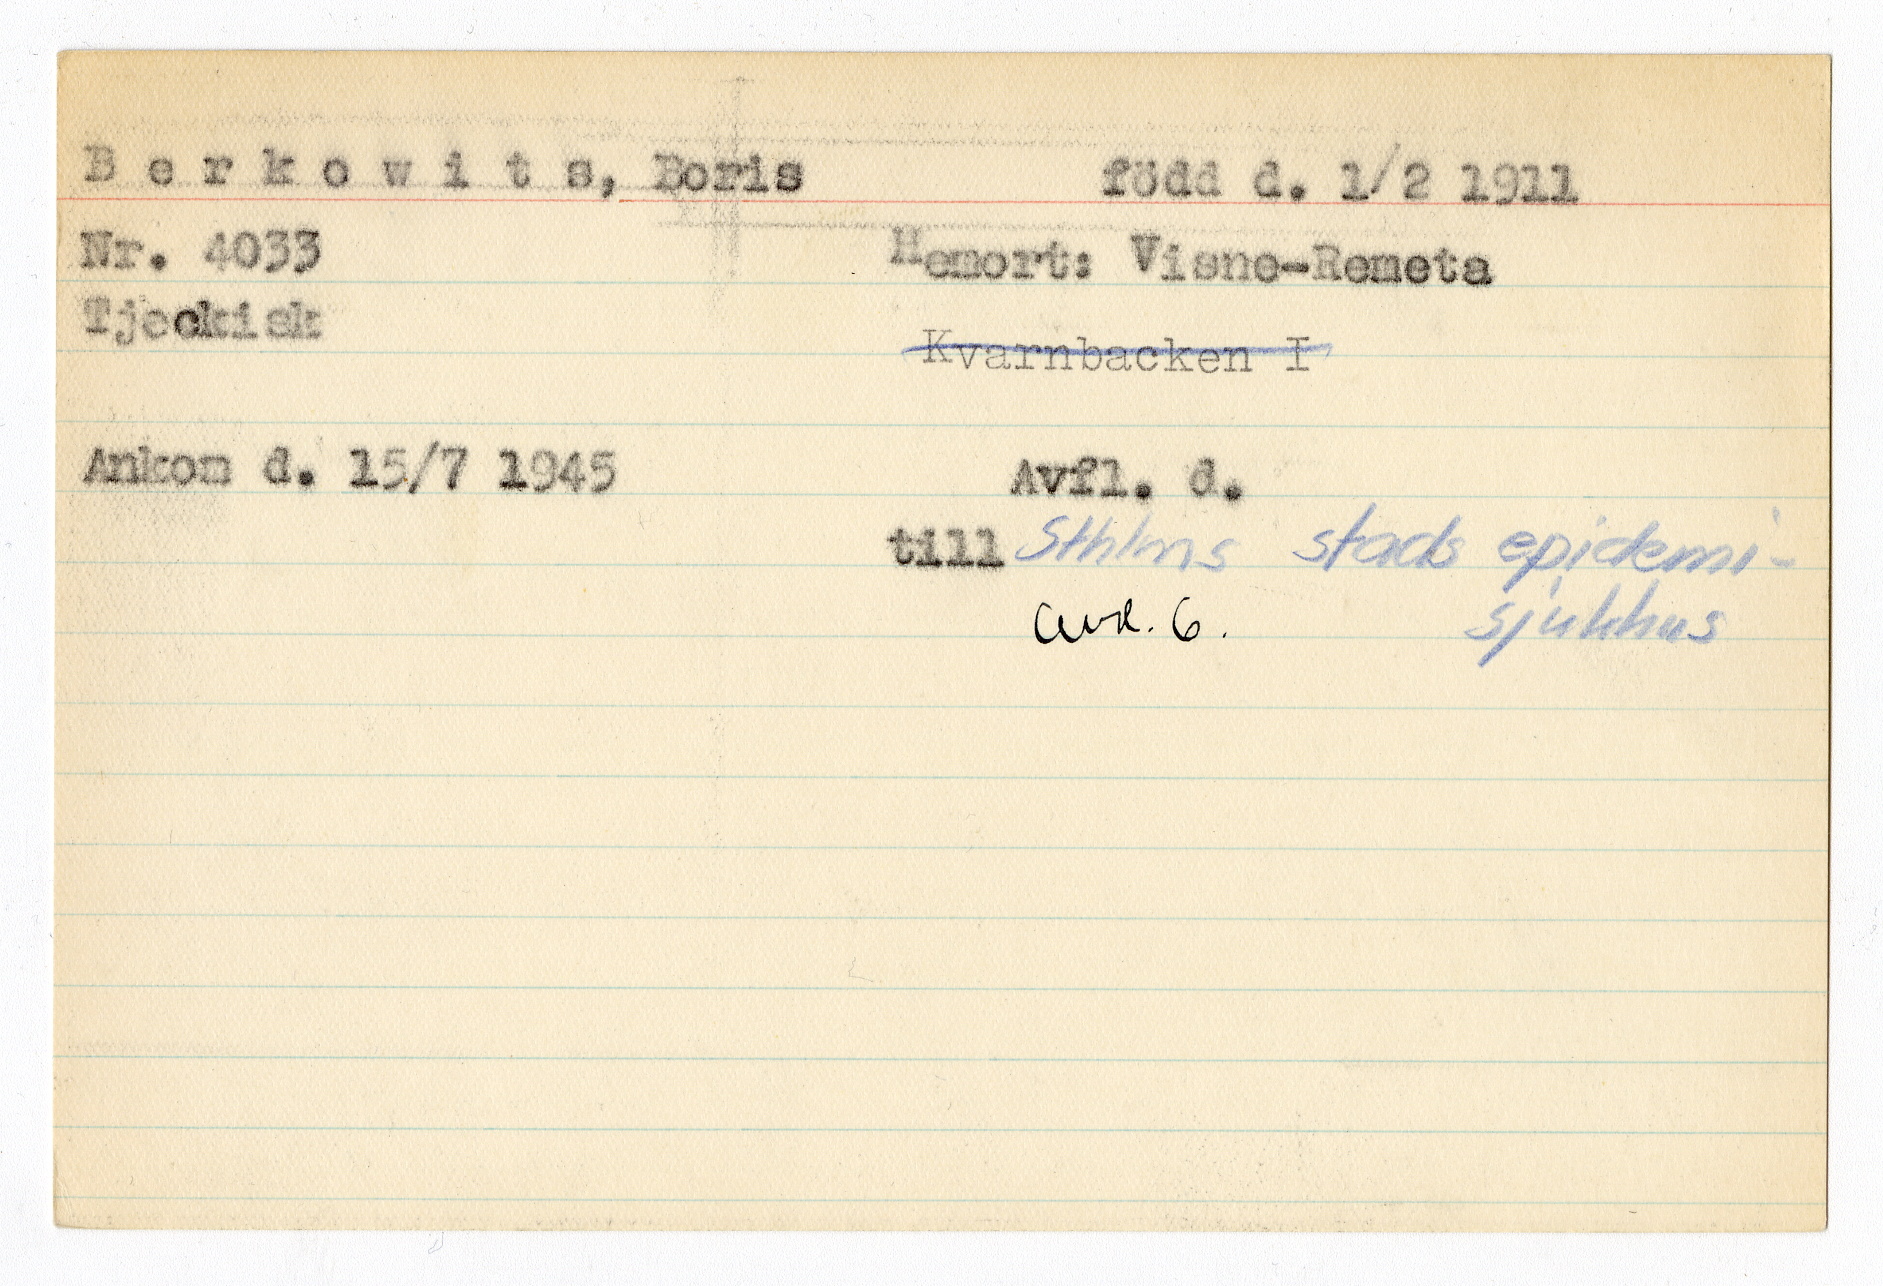 B e r k o w i t s, Boris född d. 1/2 1911
Nr. 4033 Hemort: Visne-Remeta
Tjeckisk
Kvarnbacken I
Ankom d. 15/7 1945 Avfl. d.
till Sthlms stads epidemi-
sjukhus
avd. 6.